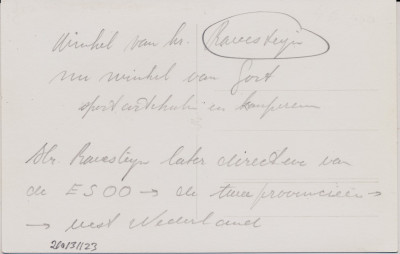 Winkel van hr. Ravesteijn
nu winkel van Gort
sportartikelen en kamperen
Hr. Ravesteijn later directeur van
de ESOO → de twee provinciën →
→ west Nederland